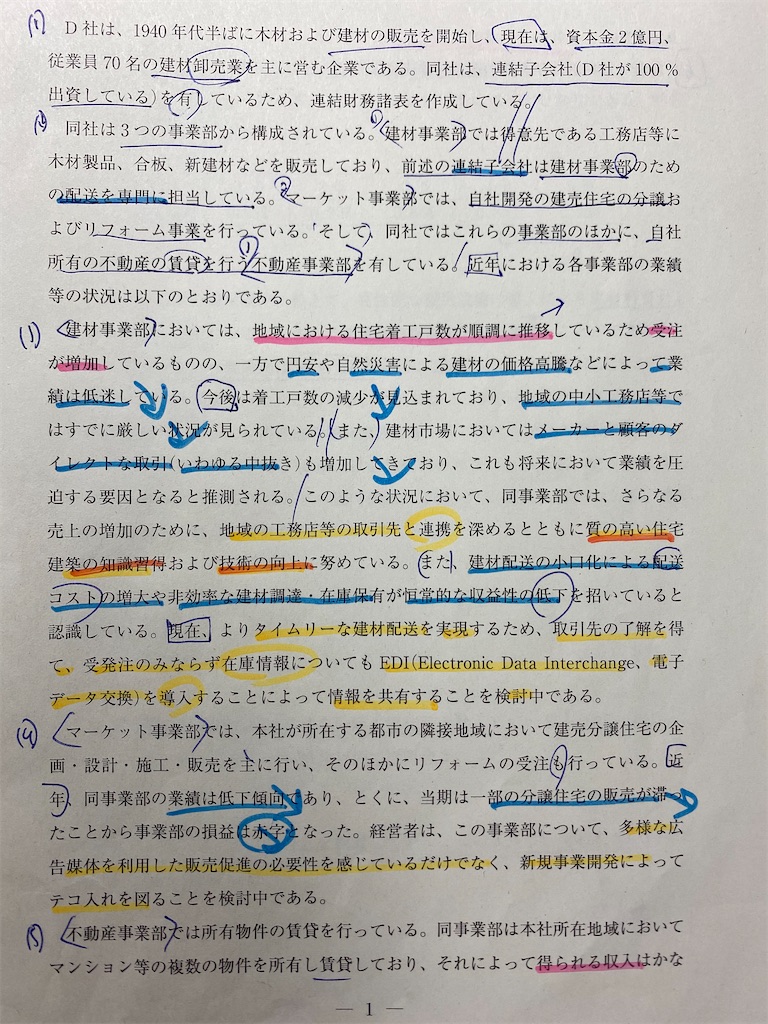 (1) D社は、1940年代半ばに木材および建材の販売を開始し、現在は、資本金2億円、
従業員70名の建材卸売業を主に営む企業である。同社は、連結子会社(D社が100%
出資している)を有しているため、連結財務諸表を作成している。
(2) 同社は3つの事業部から構成されている。①建材事業部では得意先である工務店等に
木材製品、合板、新建材などを販売しており、前述の連結子会社は建材事業部のため
の配送を専門に担当している。②マーケット事業部では、自社開発の建売住宅の分譲お
よびリフォーム事業を行っている。そして、同社ではこれらの事業部のほかに、自社
所有の不動産の賃貸を行う①不動産事業部を有している。近年における各事業部の業績
等の状況は以下のとおりである。
(3) 建材事業部においては、地域における住宅着工戸数が順調に推移しているため受注
が増加しているものの、一方で円安や自然災害による建材の価格高騰などによって業
績は低迷している。今後は着工戸数の減少が見込まれており、地域の中小工務店等で
はすでに厳しい状況が見られている。また、建材市場においてはメーカーと顧客のダ
イレクトな取引(いわゆる中抜き)も増加してきており、これも将来において業績を圧
迫する要因となると推測される。このような状況において、同事業部では、さらなる
売上の増加のために、地域の工務店等の取引先と連携を深めるとともに質の高い住宅
建築の知識習得および技術の向上に努めている。また、建材配送の小口化による配送
コストの増大や非効率な建材調達・在庫保有が恒常的な収益性の低下を招いていると
認識している。現在、よりタイムリーな建材配送を実現するため、取引先の了解を得
て、受発注のみならず在庫情報についてもEDI(Electronic Data Interchange、電子
データ交換)を導入することによって情報を共有することを検討中である。
(4) マーケット事業部では、本社が所在する都市の隣接地域において建売分譲住宅の企
画・設計・施工・販売を主に行い、そのほかにリフォームの受注も行っている。近
年、同事業部の業績は低下傾向であり、とくに、当期は一部の分譲住宅の販売が滞っ
たことから事業部の損益は赤字となった。経営者は、この事業部について、多様な広
告媒体を利用した販売促進の必要性を感じているだけでなく、新規事業開発によって
テコ入れを図ることを検討中である。
(5) 不動産事業部では所有物件の賃貸を行っている。同事業部は本社所在地域において
マンション等の複数の物件を所有し賃貸しており、それによって得られる収入はかな
― 1 ―